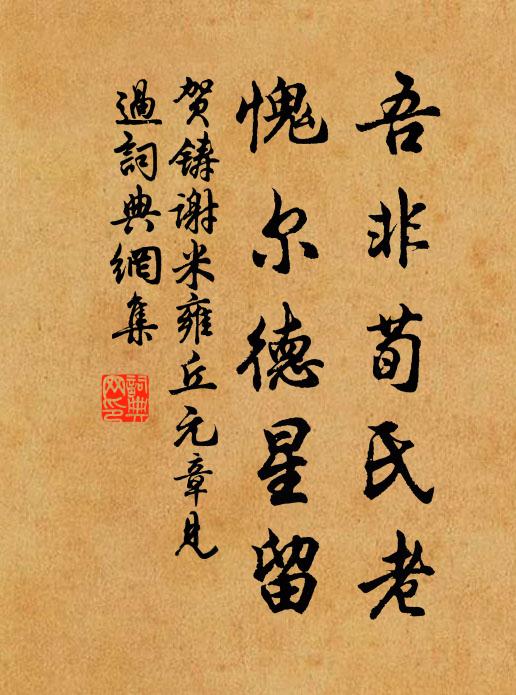 吾非荀氏老
愧尔德星留
贺铸谢米雍丘元章见
過詞典網集
詞典网印